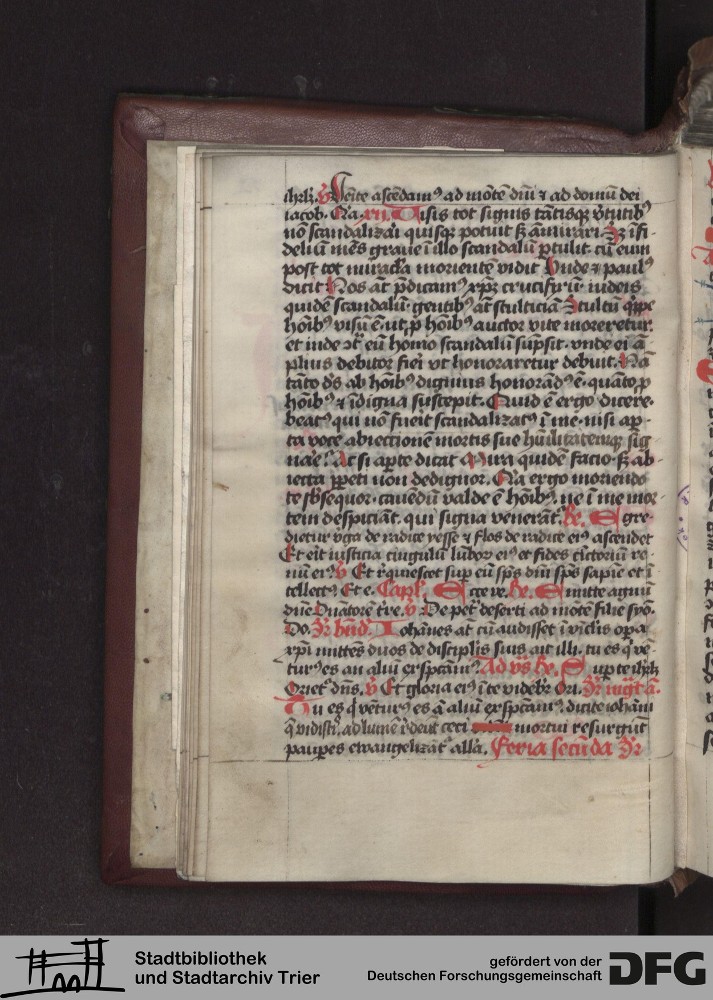 ihrlm̄. V̄ Venite ascēdam⁹ ad mōtē dñi ⁊ ad domū dei
iacob. Era. xvii. Uisis tot signis tātisqꝫ v̄tutib⁹
nō scandalizari quisqꝫ potuit sꝫ āmirari. Sꝫ īfi-
deliū mēs graue ī illo scandalū ꝑtulit. cū eum
post tot miracl̄a morientē vidit Vnde ⁊ paul⁹
dicit Nos āt p̄dicam⁹ xp̄m crucifixū. iudeis
quidē scandalū. gentib⁹ āt stulticiā Stultū q̄ppe
hoīb⁹ visū ē. ut ꝓ hoīb⁹ auctor vite moreretur.
et inde ↄͭ eū homo scandalū sūpsit. vnde ei ā
plius debitor fieri vt honoraretur debuit. Nā
tāto dꝰs ab hoīb⁹ digniꝰ honorād⁹ ē. quāto ꝓ
hoīb⁹ ⁊ īdigna suscepit. Quid ē ergo dicere.
beat⁹ qui nō fuerit scandalizat⁹ ī me. nisi aꝑ-
ta voce abiectionē mortis sue hūilitatemqꝫ sig
nare? At si aꝑte dicat Mira quidē facio. sꝫ ab
iecta ꝑpeti non dedignor. Era ergo moriendo
te sb̄sequor. cauendū valde ē hoīb⁹. ne ī me mor
tem despiciāt. qui signa venerāt̄. Re. Egre
dietur v̄ga de radice yesse ⁊ flos de radice ei⁹ ascendet
Et erit iusticia cingulū lūborꝝ ei⁹ et fides cīctoriū re-
nū ei⁹. V̄ Et r̄quiescet sup eū sp̄s dn̄i sp̄s sapīe et ī
tellect⁹ Et e. Capl. Ecce ve. Re. Emitte agnū
dn̄e Dnātorē t̄re. V̄ De pet͛ deserti ad mōtē filie syō.
Do. Ar̄ bn̄d. Iohānes āt cū audisset ī vīclis oꝑa
xp̄i mittēs duos de discipl̄is suis ait illi. tu es q̄ vē-
tur⁹ es an aliū exspctam⁹. Ad v̄s Re. Super te ihrlm̄
Oriet͛ dn̄s. V̄ Et gloria ei⁹ ī te videb͛ Ori. Ar̄ mgt̄ a.
Tu es q̄ vētur⁹ es ā aliū exspctam⁹. dicite iohāni
q̄ vidistꝭ. ad lumē r̄deūt ceci mortui resurgūt
pauꝑes ewangelizāt͛ all̄a. Feria secūda Ar̄
Stadtbibliothek
und Stadtarchiv Trier
gefördert von der
Deutschen Forschungsgemeinschaft
DFG